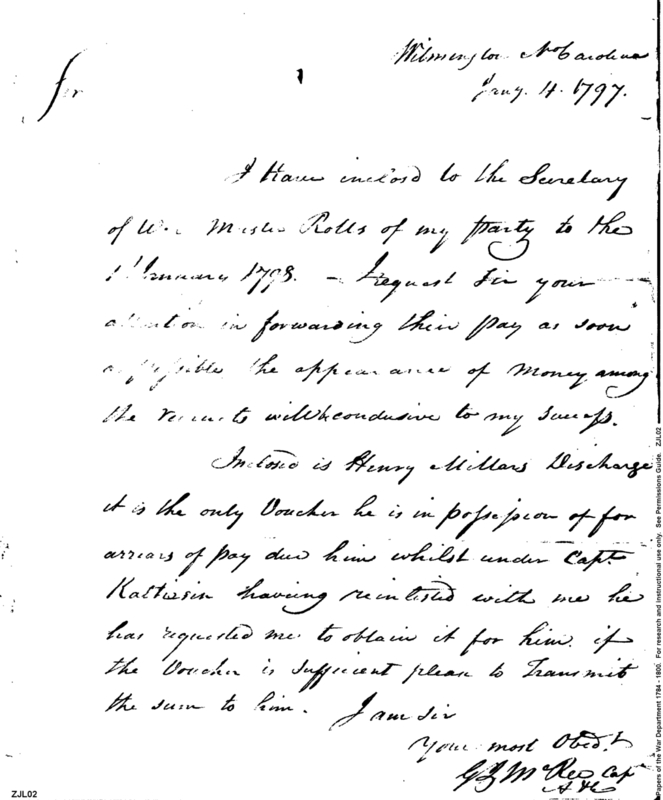 Wilmington No Carolina
Jany. 4. 1797.
Sir
I Have inclosd to the Secretary
of War Muster Rolls of my party to the
1st January 1798. – I request Sir your
attention in forwarding their pay as soon
as possible the appearance of Money among
the recruits will be condusive to my success.
Inclosed is Henry Millars Discharge
it is the only Voucher he is in possession of for
arrears of pay due him whilst under Capt.
having reinlisted with me he
has requested me to obtain it for him. if
the Voucher is sufficient please to Transmit
the sum to him. I am Sir
Your most Obedt.
McRee Capt
ZJL02
Papers of the War Department 1784 - 1800. For research and instructional use only. See Permissions Guide. ZJL02